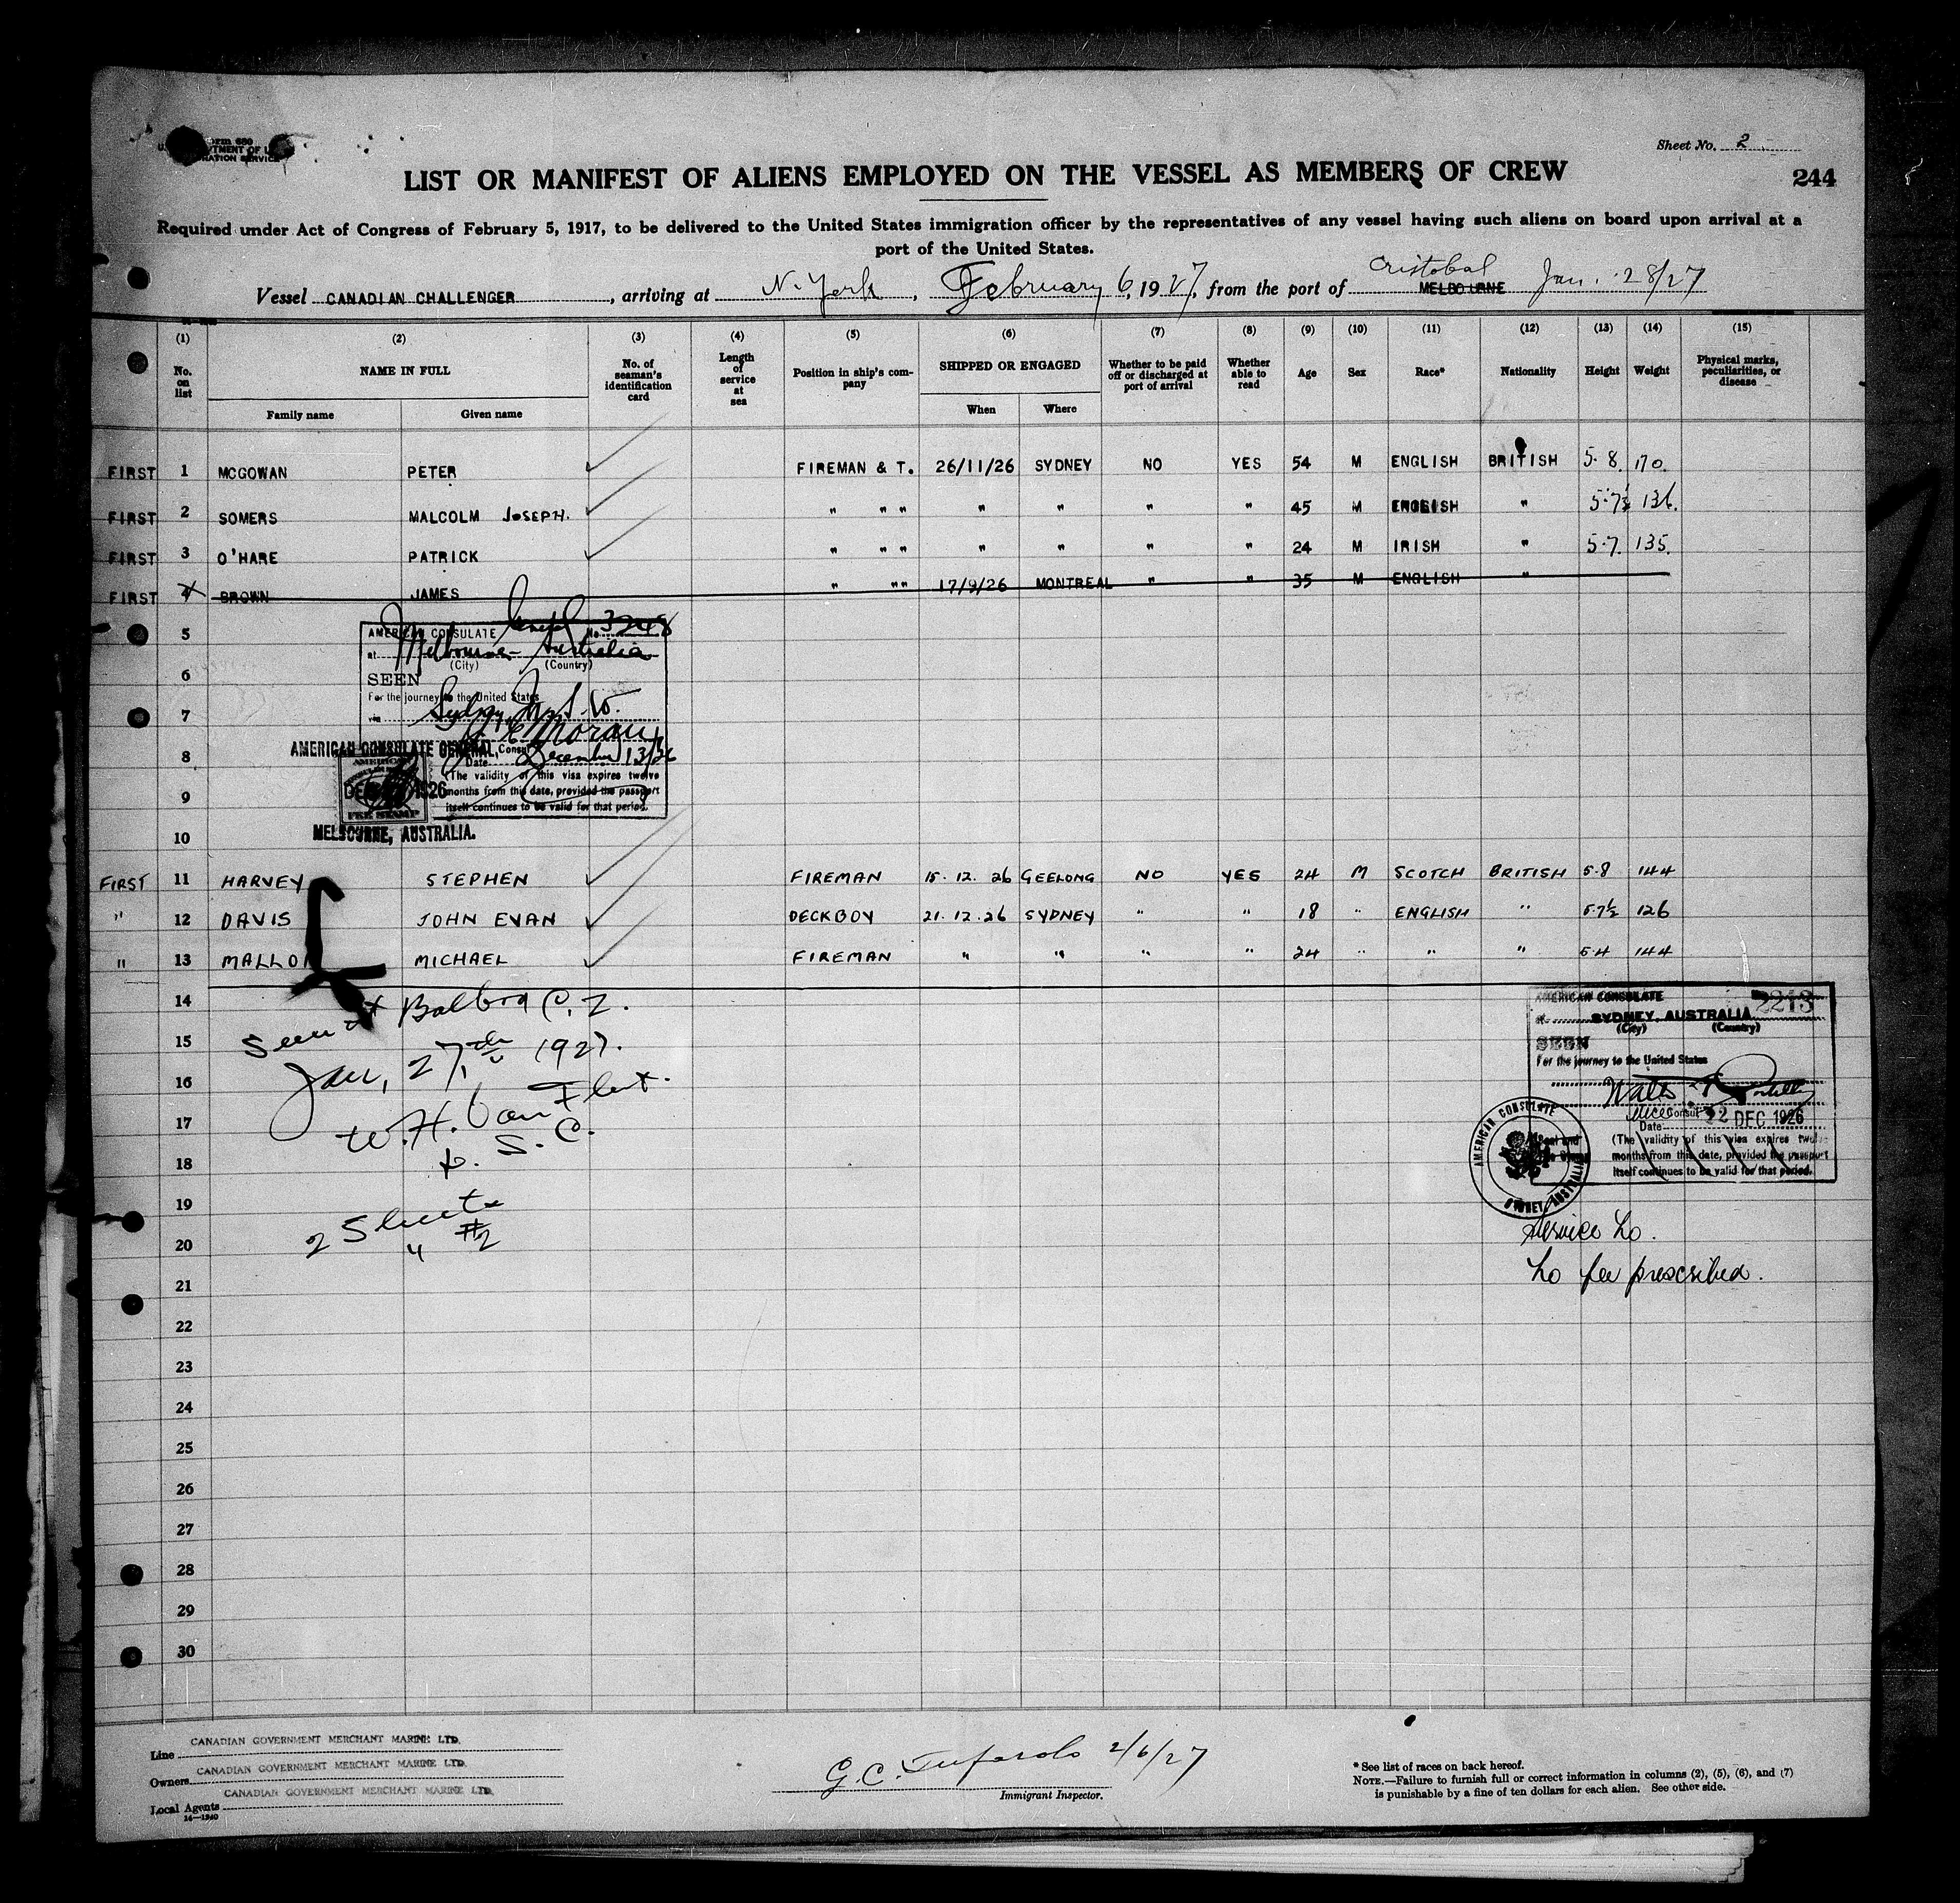 Sheet No. 2
LIST OR MANIFEST OF ALIENS EMPLOYED ON THE VESSEL AS MEMBERS OF CREW
244
Required under Act of Congress of February 5, 1917, to be delivered to the United States immigration officer by the representatives of any vessel having such aliens on board upon arrival at a
port of the United States.
Vessel CANADIAN CHALLENGER, arriving at N. York, February 6, 1927, from the port of Cristobal MELBOURNE Jan. 28/27
(1) (2) (3) (4) (5) (6) (7) (8) (9) (10) (11) (12) (13) (14) (15)
No. on list NAME IN FULL No. of seaman's identification card Length of service at sea Position in ship's company SHIPPED OR ENGAGED Whether to be paid off or discharged at port of arrival Whether able to read Age Sex Race* Nationality Height Weight Physical marks, peculiarities, or disease
Family name Given name When Where
FIRST 1 MCGOWAN PETER FIREMAN & T. 26/11/26 SYDNEY NO YES 54 M ENGLISH BRITISH 5-8. 170.
FIRST 2 SOMERS MALCOLM JOSEPH. " " " " " " " 45 M ENGLISH " 5-7½ 136.
FIRST 3 O'HARE PATRICK " " " " " " " 24 M IRISH " 5-7. 135.
FIRST 4 BROWN JAMES " " " 17/9/26 MONTREAL " " 35 M ENGLISH "
5
6
7
8
9
10
AMERICAN CONSULATE No. 3248
at Melbourne Australia
(City) (Country)
SEEN
For the journey to the United States
via Sydney N.S.W.
Moran
Consul
Date December 13/26
(The validity of this visa expires twelve
months from this date, provided the passport
itself continues to be valid for that period.
AMERICAN CONSULATE GENERAL,
AMERICAN
1926
FEE STAMP
MELBOURNE, AUSTRALIA.
FIRST 11 HARVEY STEPHEN FIREMAN 15.12.26 GEELONG NO YES 24 M SCOTCH BRITISH 5-8 144
" 12 DAVIS JOHN EVAN DECKBOY 21.12.26 SYDNEY " " 18 " ENGLISH " 5-7½ 126
" 13 MALLON MICHAEL FIREMAN " " " " 24 " " " 5-4 144
14
15
16
17
18
19
20
21
22
23
24
25
26
27
28
29
30
Seen at Balboa C.Z.
Jan, 27,th 1927.
W.H. Van Fleet.
S.C.
2 Sheets
" #2
AMERICAN CONSULATE 2213
at SYDNEY, AUSTRALIA
(City) (Country)
SEEN
For the journey to the United States
Vice Consul
Date 22 DEC 1926
(The validity of this visa expires twelve
months from this date, provided the passport
itself continues to be valid for that period.
AMERICAN CONSULATE
SYDNEY, AUSTRALIA
Service No.
No fee prescribed.
Line CANADIAN GOVERNMENT MERCHANT MARINE LTD.
Owners CANADIAN GOVERNMENT MERCHANT MARINE LTD.
Local Agents CANADIAN GOVERNMENT MERCHANT MARINE LTD.
14—1940
G.C. 2/6/27
Immigrant Inspector.
* See list of races on back hereof.
NOTE.—Failure to furnish full or correct information in columns (2), (5), (6), and (7)
is punishable by a fine of ten dollars for each alien. See other side.